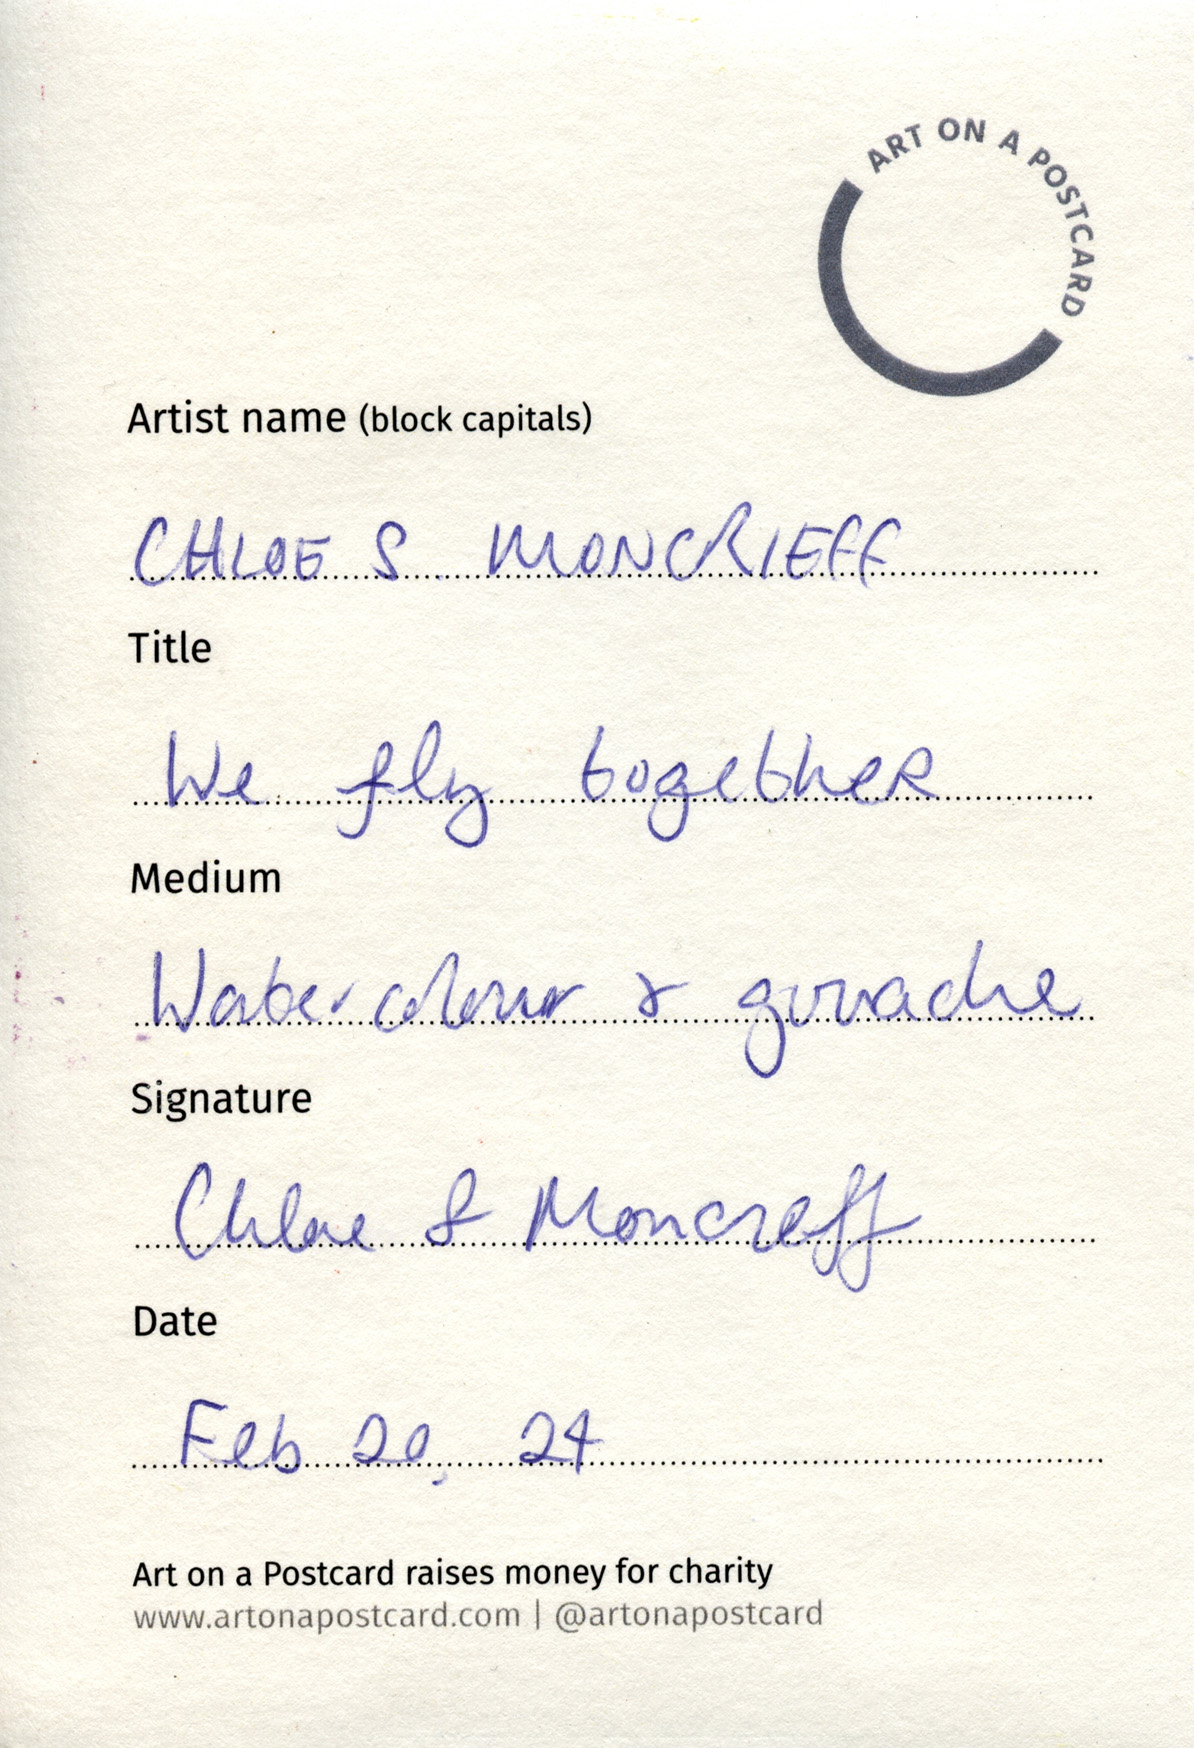 ART ON A POSTCARD
Artist name (block capitals)
CHLOE S. MONCRIEFF
Title
We fly together
Medium
Watercolour & gouache
Signature
Chloe S Moncrieff
Date
Feb 20, 24
Art on a Postcard raises money for charity
www.artonapostcard.com | @artonapostcard